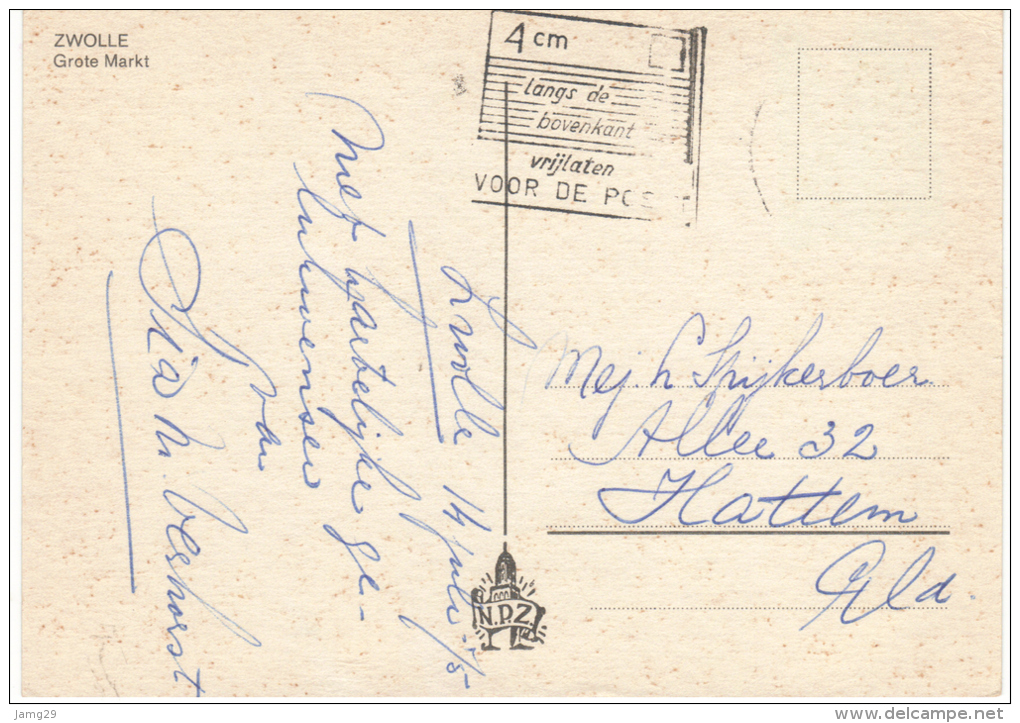 ZWOLLE
Grote Markt
4 cm
langs de
bovenkant
vrijlaten
VOOR DE POS
Zwolle 14 juli-'75
Met hartelijke ge-
lukwensen
van
M. Verhorst
Mej. h Spijkerboer
Allee 32
Hattem
Gld.
N.P.Z.
Jamg29
www.delcampe.net